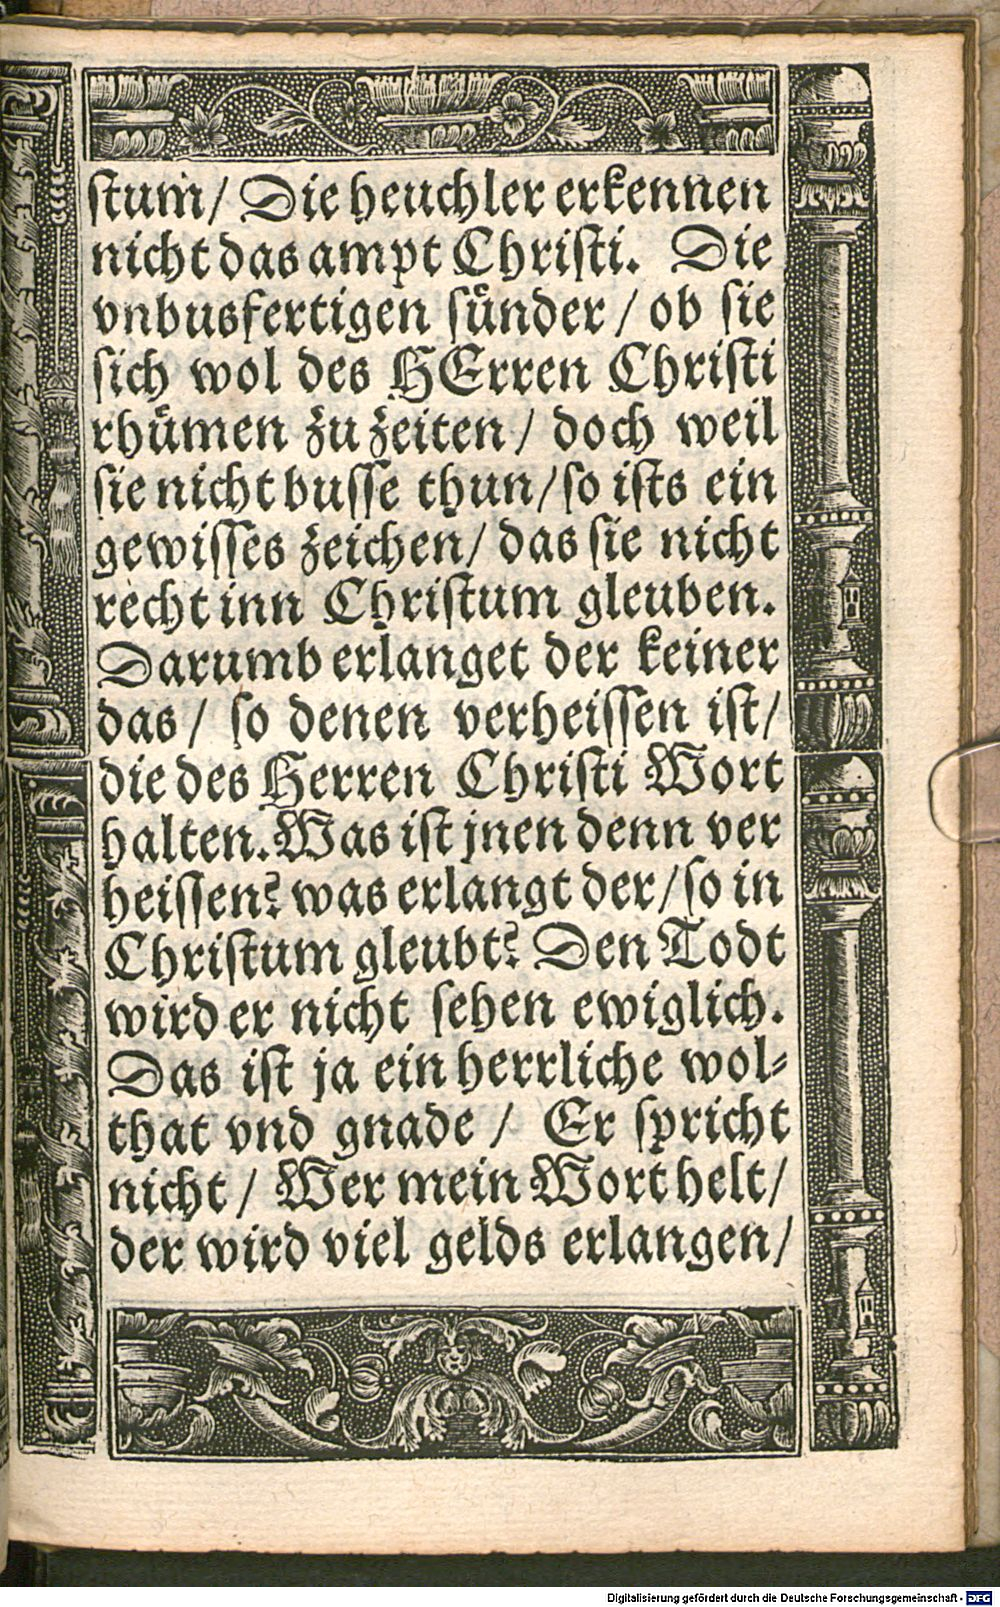 stum/ Die heuchler erkennen
nicht das ampt Christi. Die
vnbusfertigen sünder / ob sie
sich wol des HErren Christi
rhümen zu zeiten / doch weil
sie nicht busse thun/ so ists ein
gewisses zeichen/ das sie nicht
recht inn Christum gleuben.
Darumb erlanget der keiner
das / so denen verheissen ist/
die des Herren Christi Wort
halten. Was ist jnen denn ver
heissen? was erlangt der/ so in
Christum gleubt? Den Todt
wird er nicht sehen ewiglich.
Das ist ja ein herrliche wol-
that vnd gnade / Er spricht
nicht / Wer mein Wort helt/
der wird viel gelds erlangen/
Digitalisierung gefördert durch die Deutsche Forschungsgemeinschaft - DFG